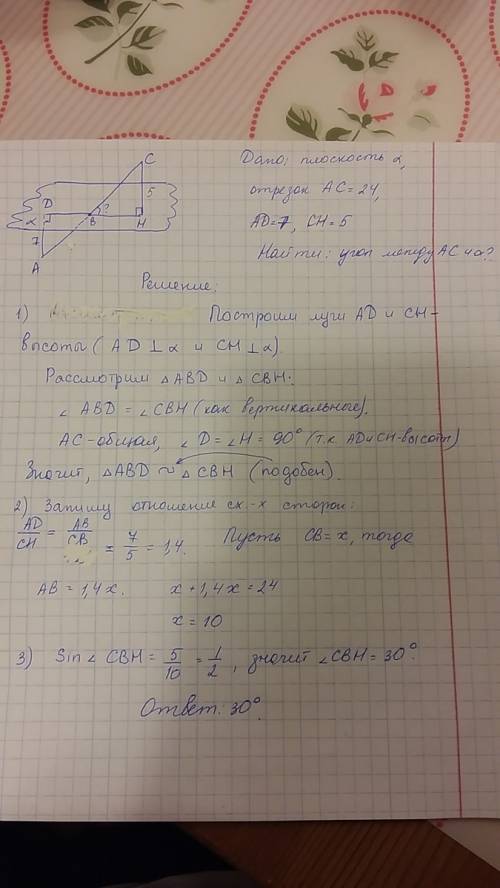 C
5
D
α
B
?
H
7
A
Дано: плоскость α,
отрезок AC = 24,
AD = 7, CH = 5
Найти: угол между AC и α?
Решение:
1) Построим лучи AD и CH –
высоты (AD ⊥ α и CH ⊥ α).
Рассмотрим △ABD и △CBH:
∠ABD = ∠CBH (как вертикальные),
AC - общая, ∠D = ∠H = 90° (т.к. AD и CH - высоты)
Значит, △ABD ~ △CBH (подобен).
2) Запишу отношение сх-х сторон:
AD/CH = AB/CB = 7/5 = 1,4. Пусть CB = x, тогда
AB = 1,4x. x + 1,4x = 24
x = 10
3) Sin ∠CBH = 5/10 = 1/2, значит ∠CBH = 30°.
Ответ: 30°.